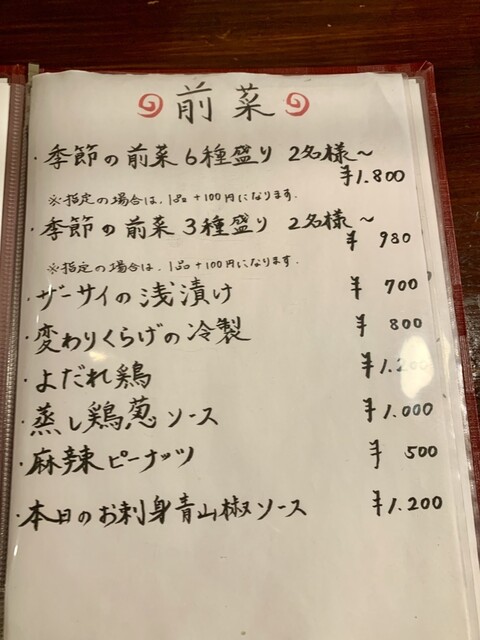 前菜
・季節の前菜6種盛り 2名様〜
¥1.800
※指定の場合は、1品+100円になります.
・季節の前菜3種盛り 2名様〜
¥ 980
※指定の場合は、1品+100円になります.
・ザーサイの浅漬け ¥ 700
・変わりくらげの冷製 ¥ 800
・よだれ鶏 ¥1.200
・蒸し鶏葱ソース ¥1.000
・麻辣ピーナッツ ¥ 500
・本日のお刺身青山椒ソース ¥1.200